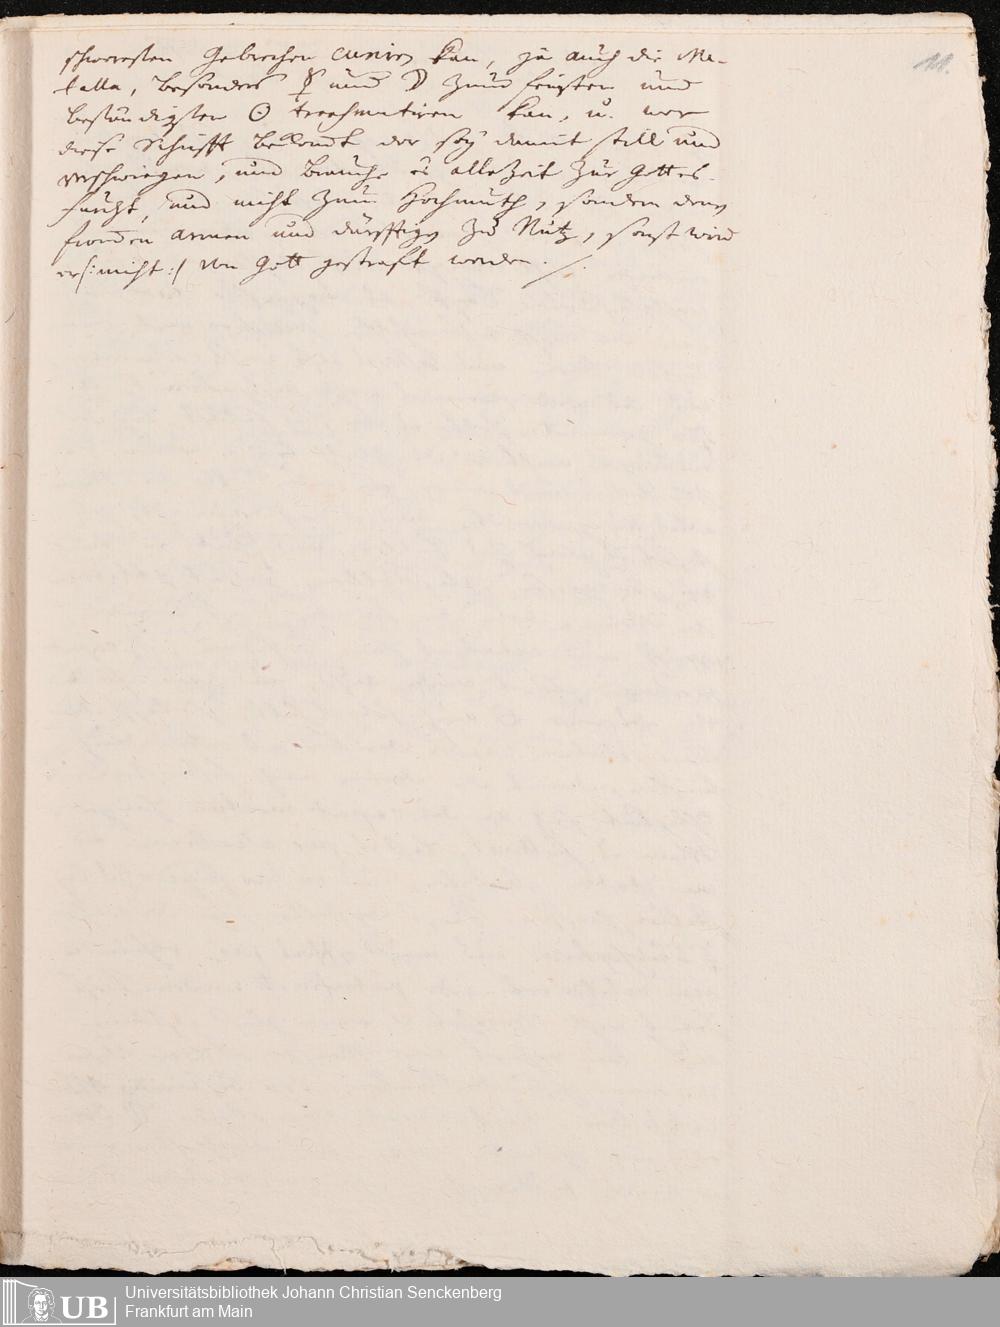 schweresten Gebrechen curiren kan, ja auch die Me-
talla, besonders ☿ und ☽ zum feinsten und
beständigsten ☉ transmutiren kan, u. wer
diese Schrifft bekomt der sey damit still und
verschwiegen, und brauche es allezeit zur Gottes-
furcht, und nicht zum Hochmuth, sondern denen
armen und dürfftigen zu Nutz, sonst wird
er /:nicht:/ von Gott gestraft werden. /.
11.
UB
Universitätsbibliothek Johann Christian Senckenberg
Frankfurt am Main